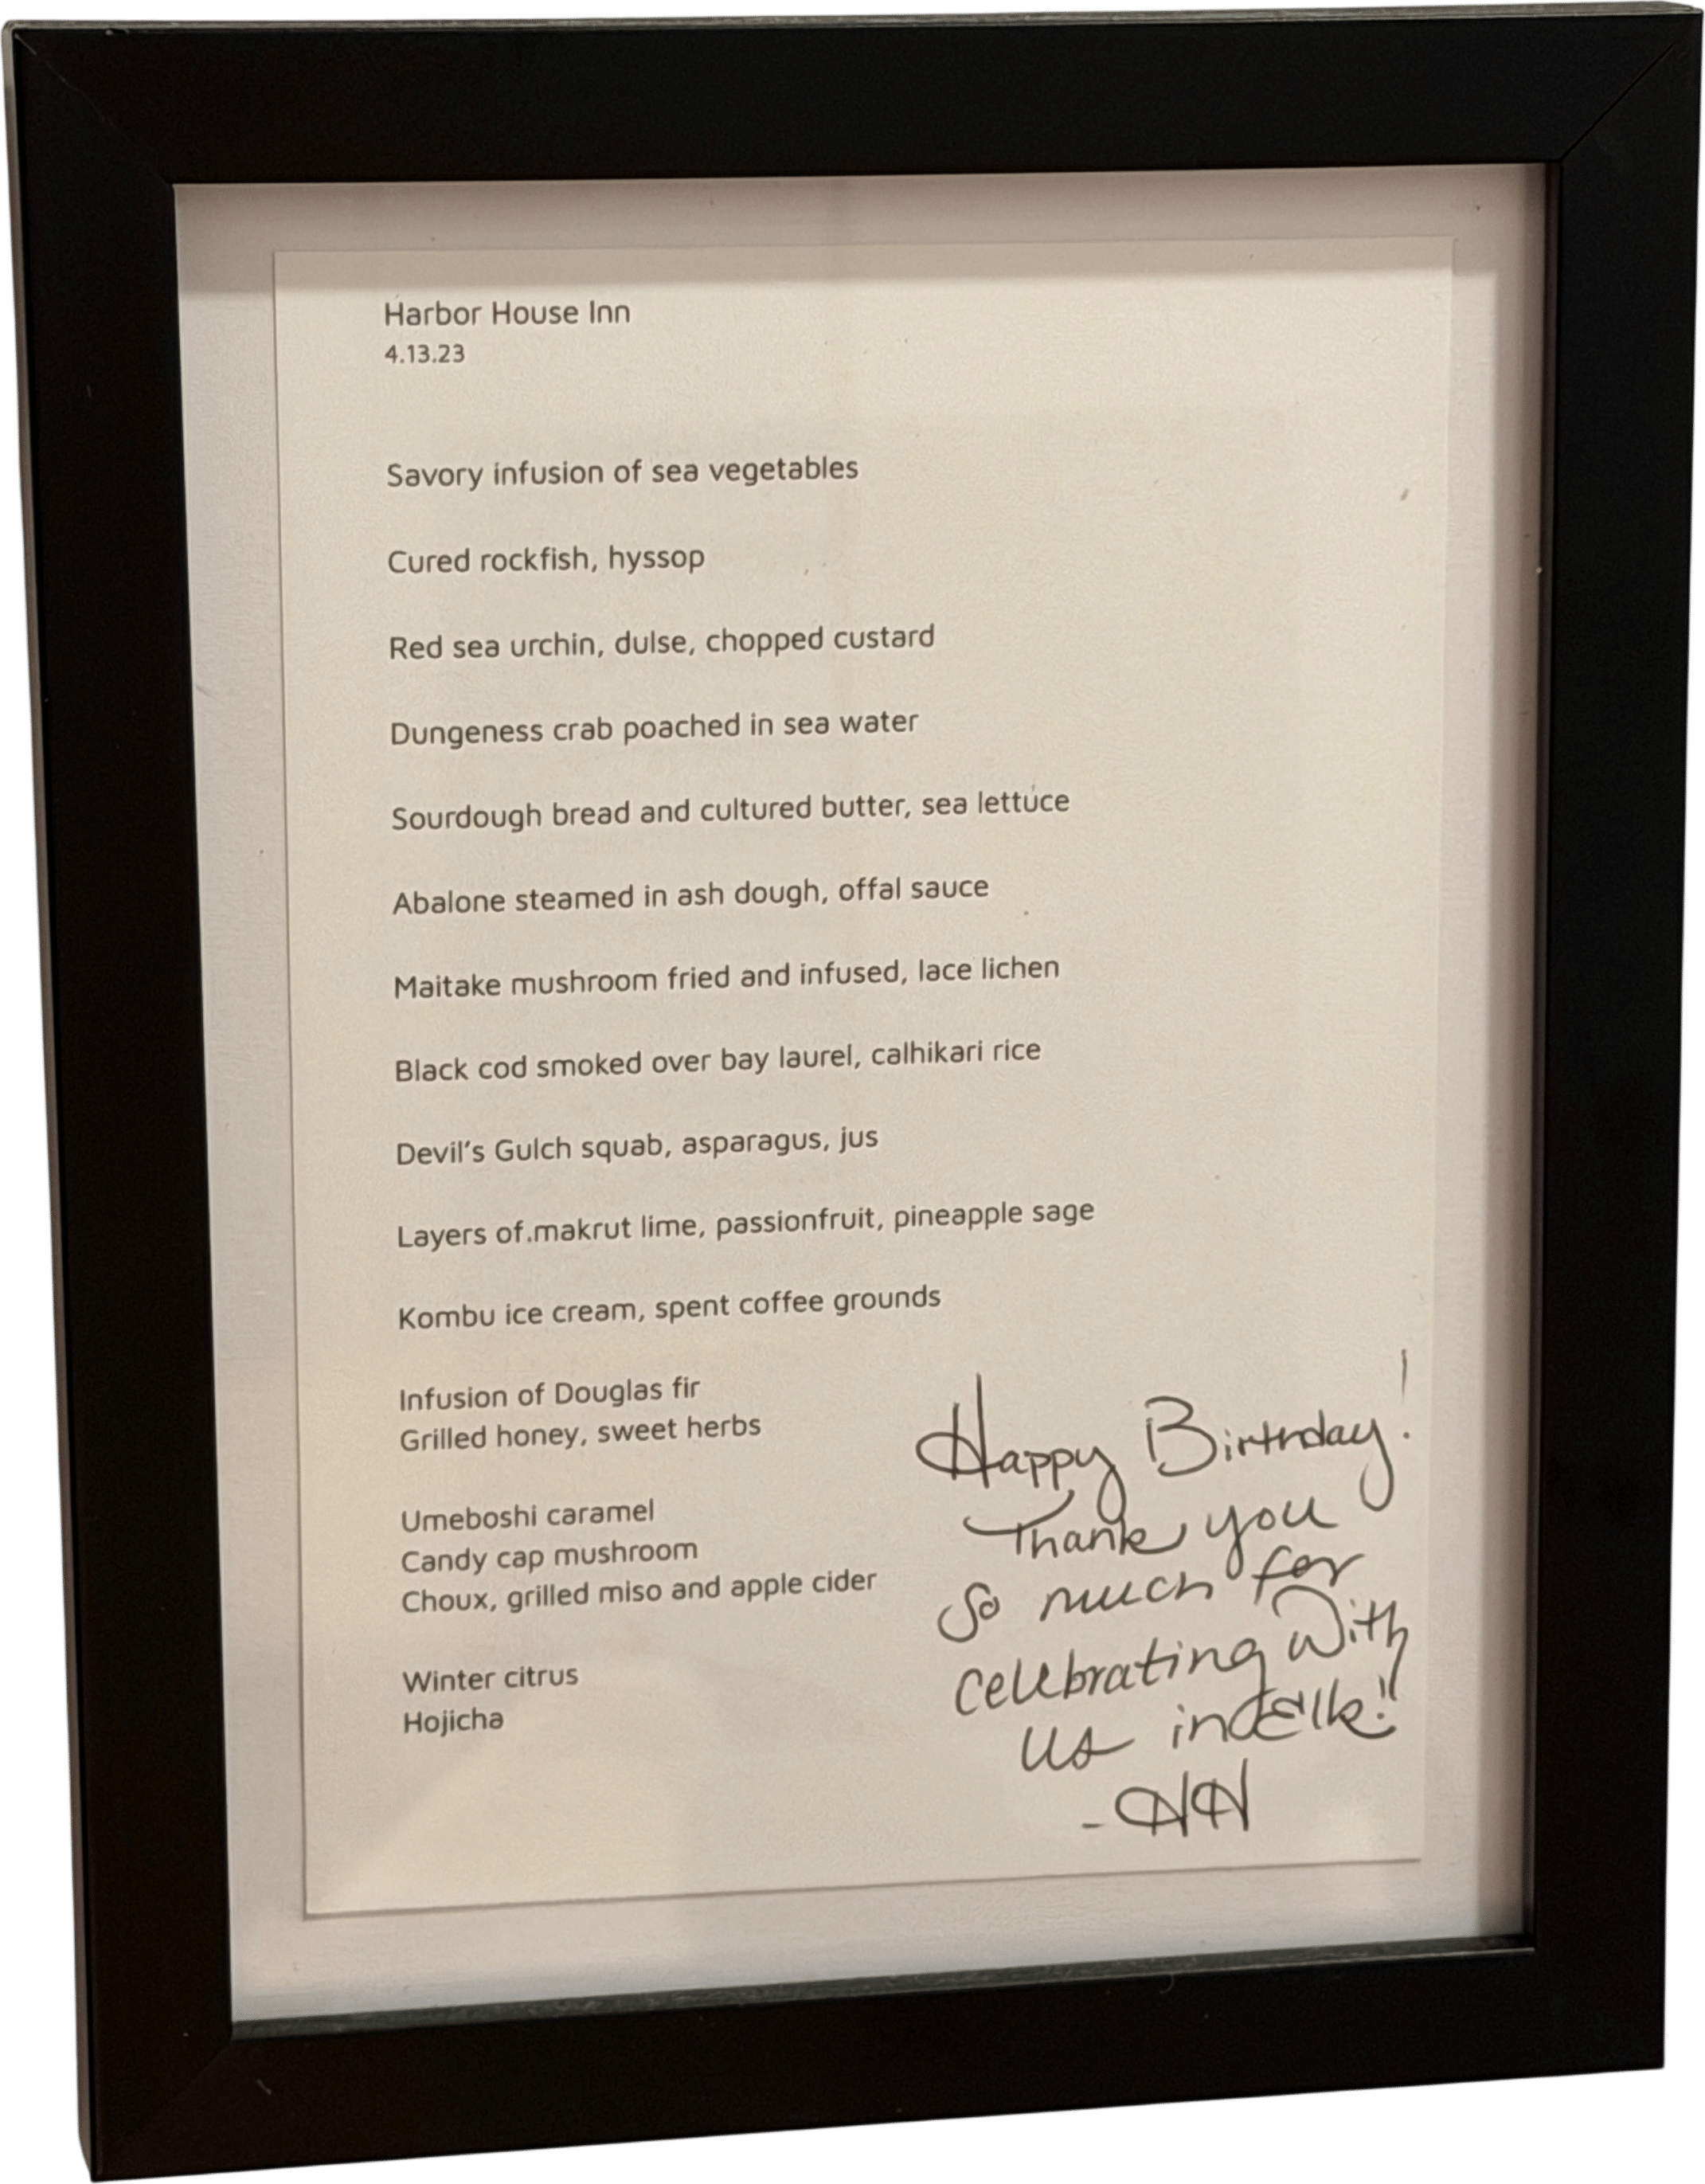 Harbor House Inn
4.13.23
Savory infusion of sea vegetables
Cured rockfish, hyssop
Red sea urchin, dulse, chopped custard
Dungeness crab poached in sea water
Sourdough bread and cultured butter, sea lettuce
Abalone steamed in ash dough, offal sauce
Maitake mushroom fried and infused, lace lichen
Black cod smoked over bay laurel, calhikari rice
Devil's Gulch squab, asparagus, jus
Layers of makrut lime, passionfruit, pineapple sage
Kombu ice cream, spent coffee grounds
Infusion of Douglas fir
Grilled honey, sweet herbs
Umeboshi caramel
Candy cap mushroom
Choux, grilled miso and apple cider
Winter citrus
Hojicha
Happy Birthday!
Thank you
so much for
celebrating with
us in Elk!
- HH